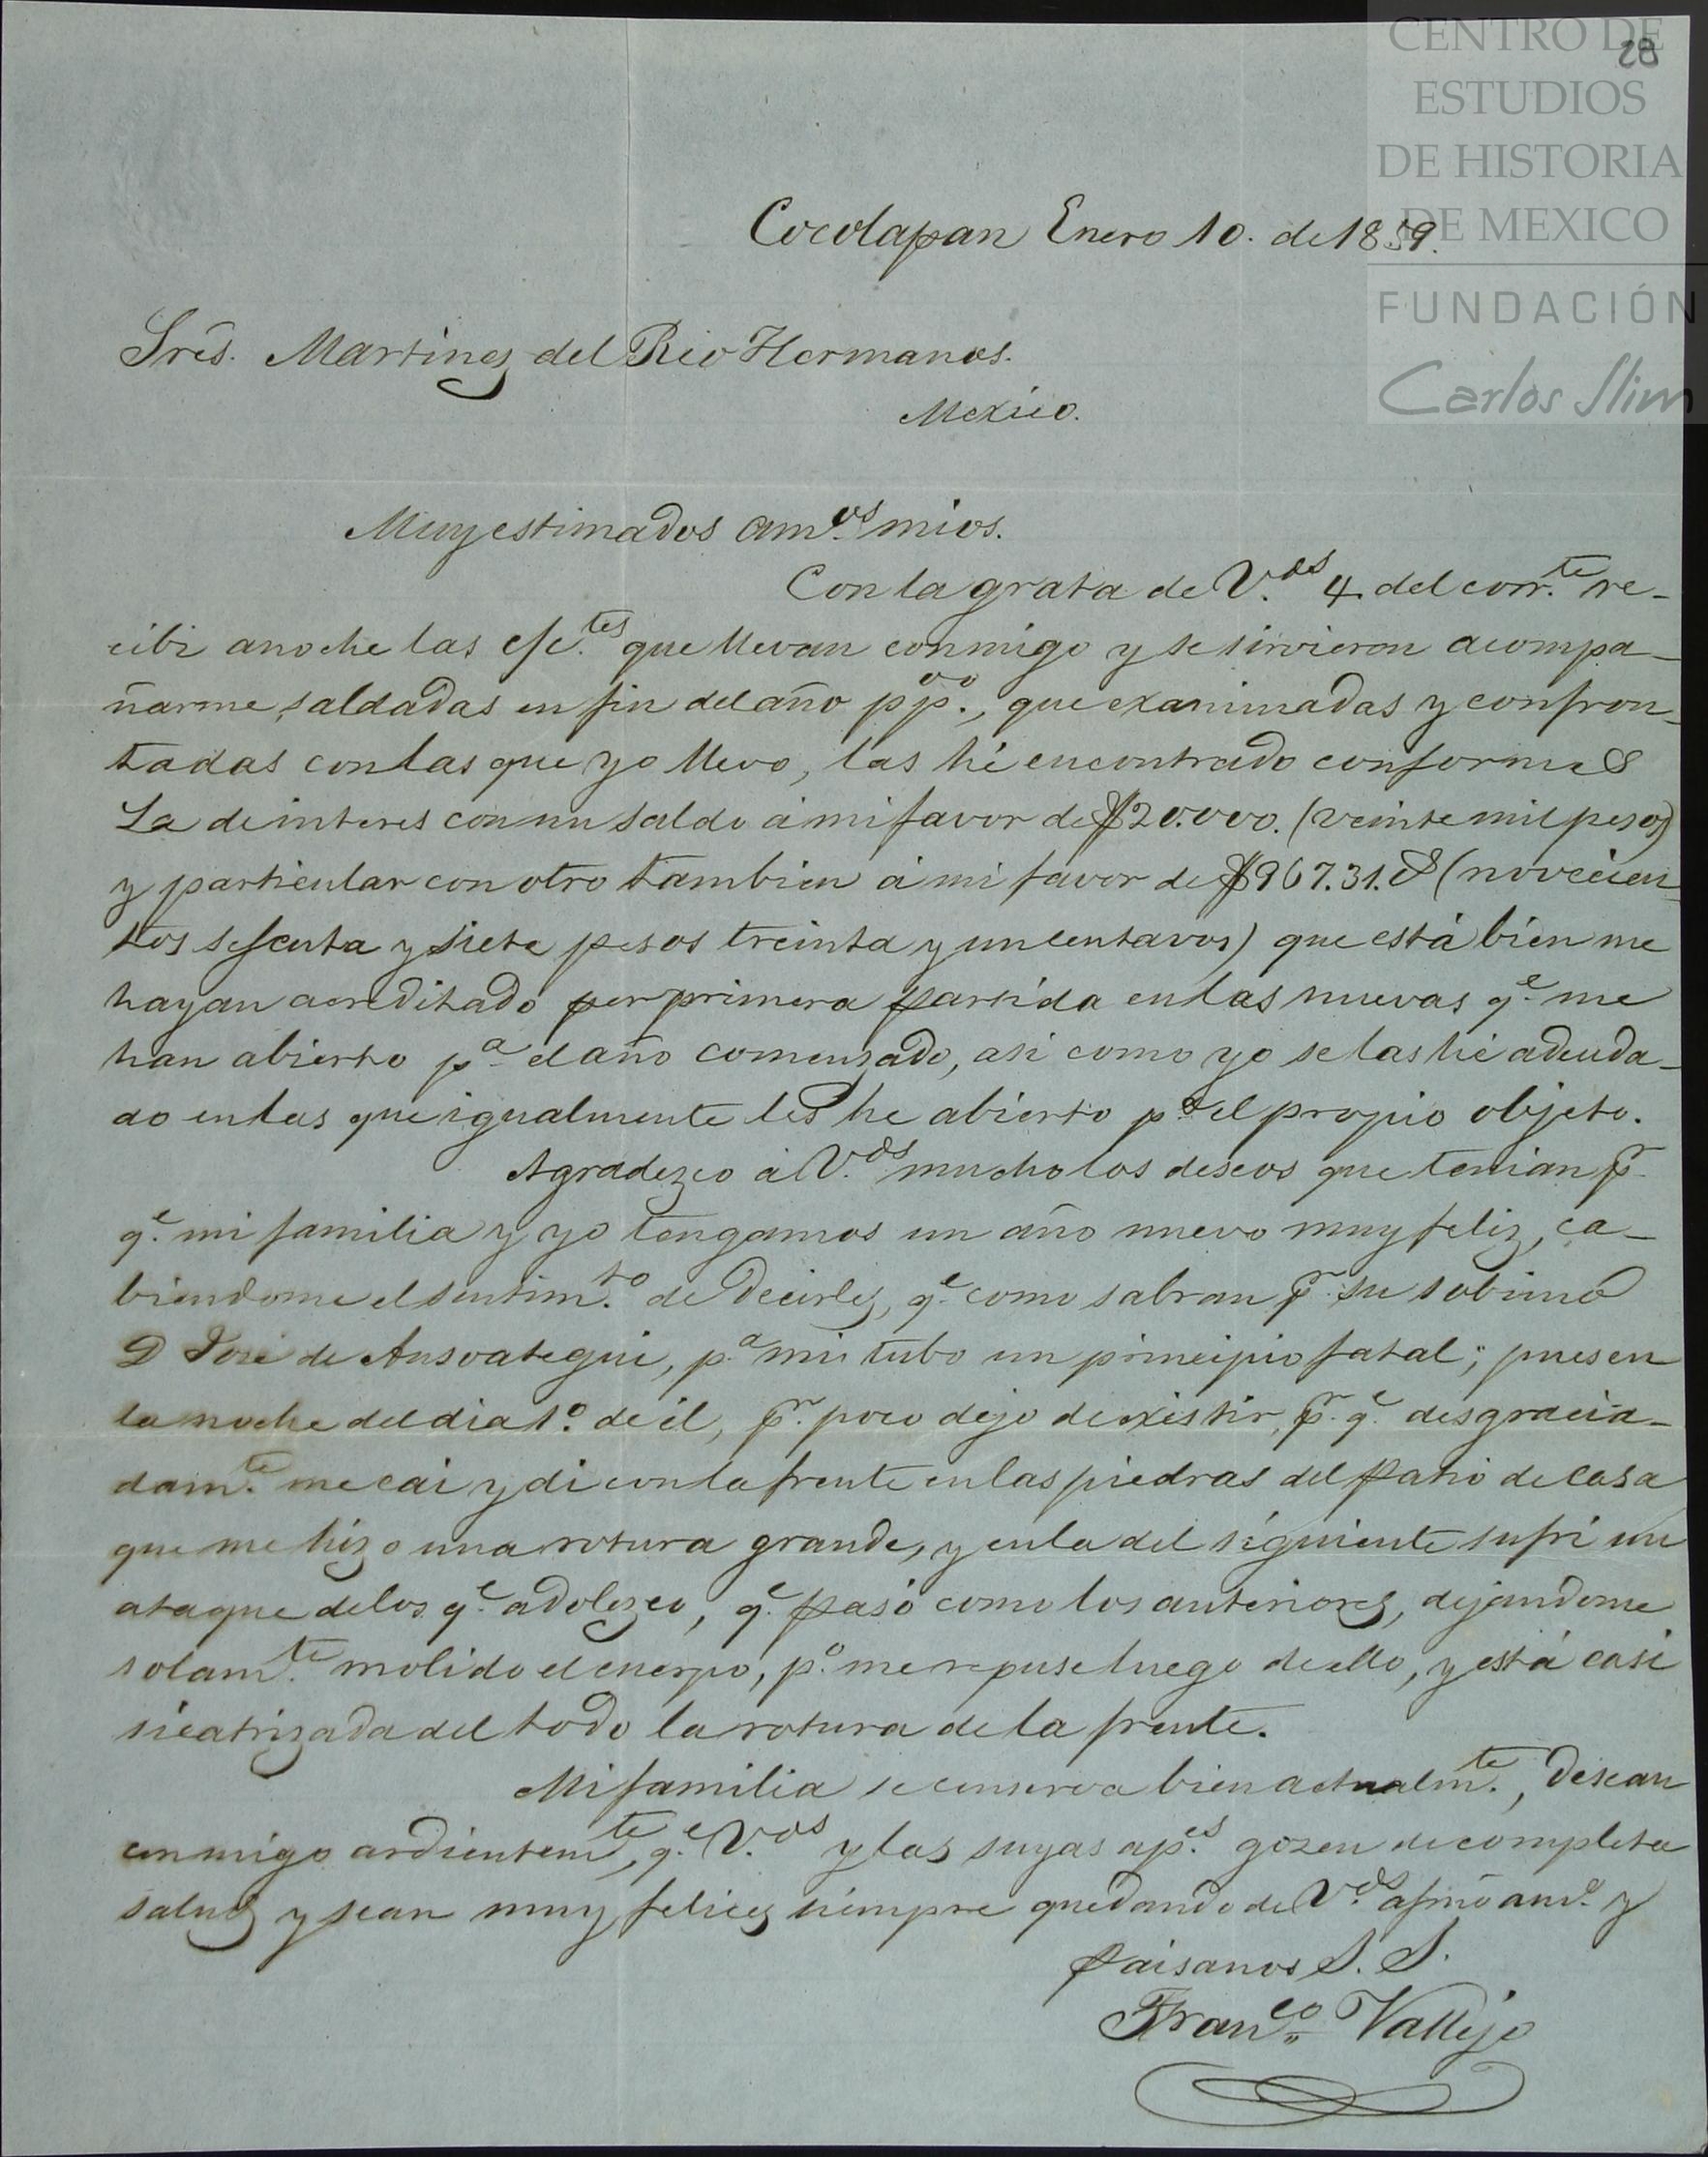 28
CENTRO DE
ESTUDIOS
DE HISTORIA
DE MEXICO
FUNDACIÓN
Carlos Slim
Cocolapan Enero 10. de 1859.
Sres. Martinez del Rio Hermanos.
Mexico.
Muy estimados am.os mios.
Con la grata de V.des 4 del corr.te re-
cibi anoche las c/c.tes que llevan conmigo y se sirvieron acompa-
ñarme, saldadas en fin del año p.o p.o, que examinadas y confron-
tadas con las que yo llevo, las hé encontrado conformes
La de interes con un saldo á mi favor de $20.000. (veinte mil pesos)
y particular con otro tambien á mi favor de $967.31. (novecien-
tos sesenta y siete pesos treinta y un centavos) que está bien me
hayan acreditado por primera partida en las nuevas q.e me
han abierto p.a el año comenzado, asi como yo se las hé adeuda-
do en las que igualmente les he abierto p.a el propio objeto.
Agradezco á V.des mucho los deseos que tenian p.r
q.e mi familia y yo tengamos un año nuevo muy feliz, ca-
biendome el sentim.to de decirles, q.e como sabran p.r su sobrino
D José de Ansoategui, p.a mi tubo un principio fatal; pues en
la noche del dia 1.o de él, p.r poco dejo de existir, p.r q.e desgracia-
dam.te me cai y di con la frente en las piedras del patio de casa
que me hizo una rotura grande, y en la del siguiente sufri un
ataque de los q.e adolezco, q.e pasó como los anteriores, dejandome
solam.te molido el cuerpo, p.o me repuse luego de ello, y está casi
sicatrizada del todo la rotura de la frente.
Mi familia se conserva bien actualm.te, desean
conmigo ardientem.te, q.e V.des y las suyas ap.s gozen de completa
salud y sean muy felices siempre quedando de V.des afmo am.o y
paisanos S. S.
Fran.co Vallejo